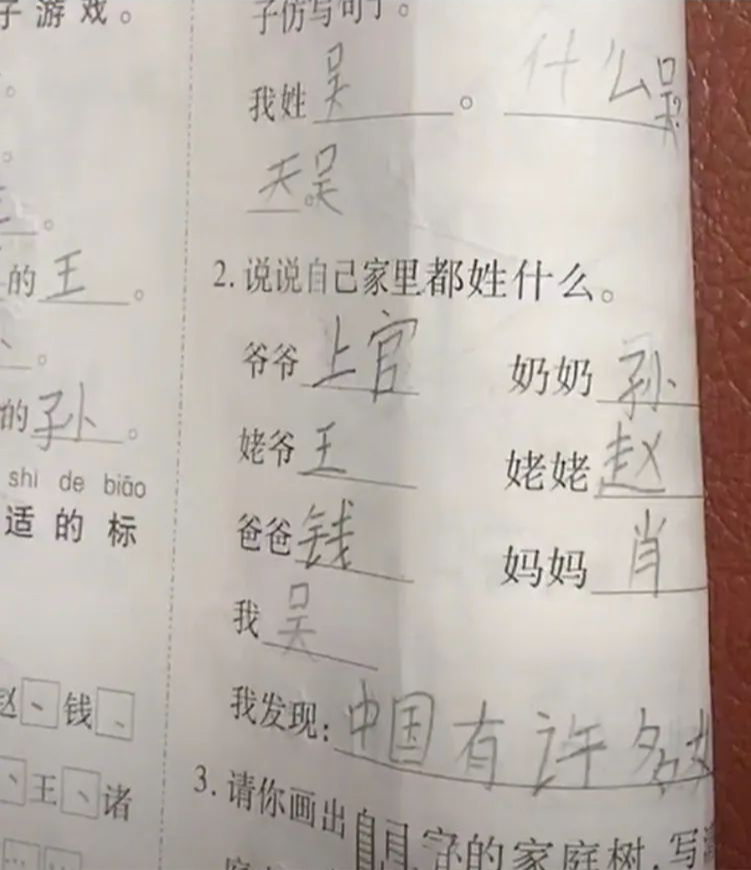 子游戏。
的王。
的孙。
shì de biāo
适的标
赵、钱、
、王、诸
子仿写句子。
我姓吴。什么吴?
天吴。
2.说说自己家里都姓什么。
爷爷上官 奶奶孙
姥爷王 姥姥赵
爸爸钱 妈妈肖
我吴
我发现:中国有许多
3.请你画出自己家的家庭树,写
庭